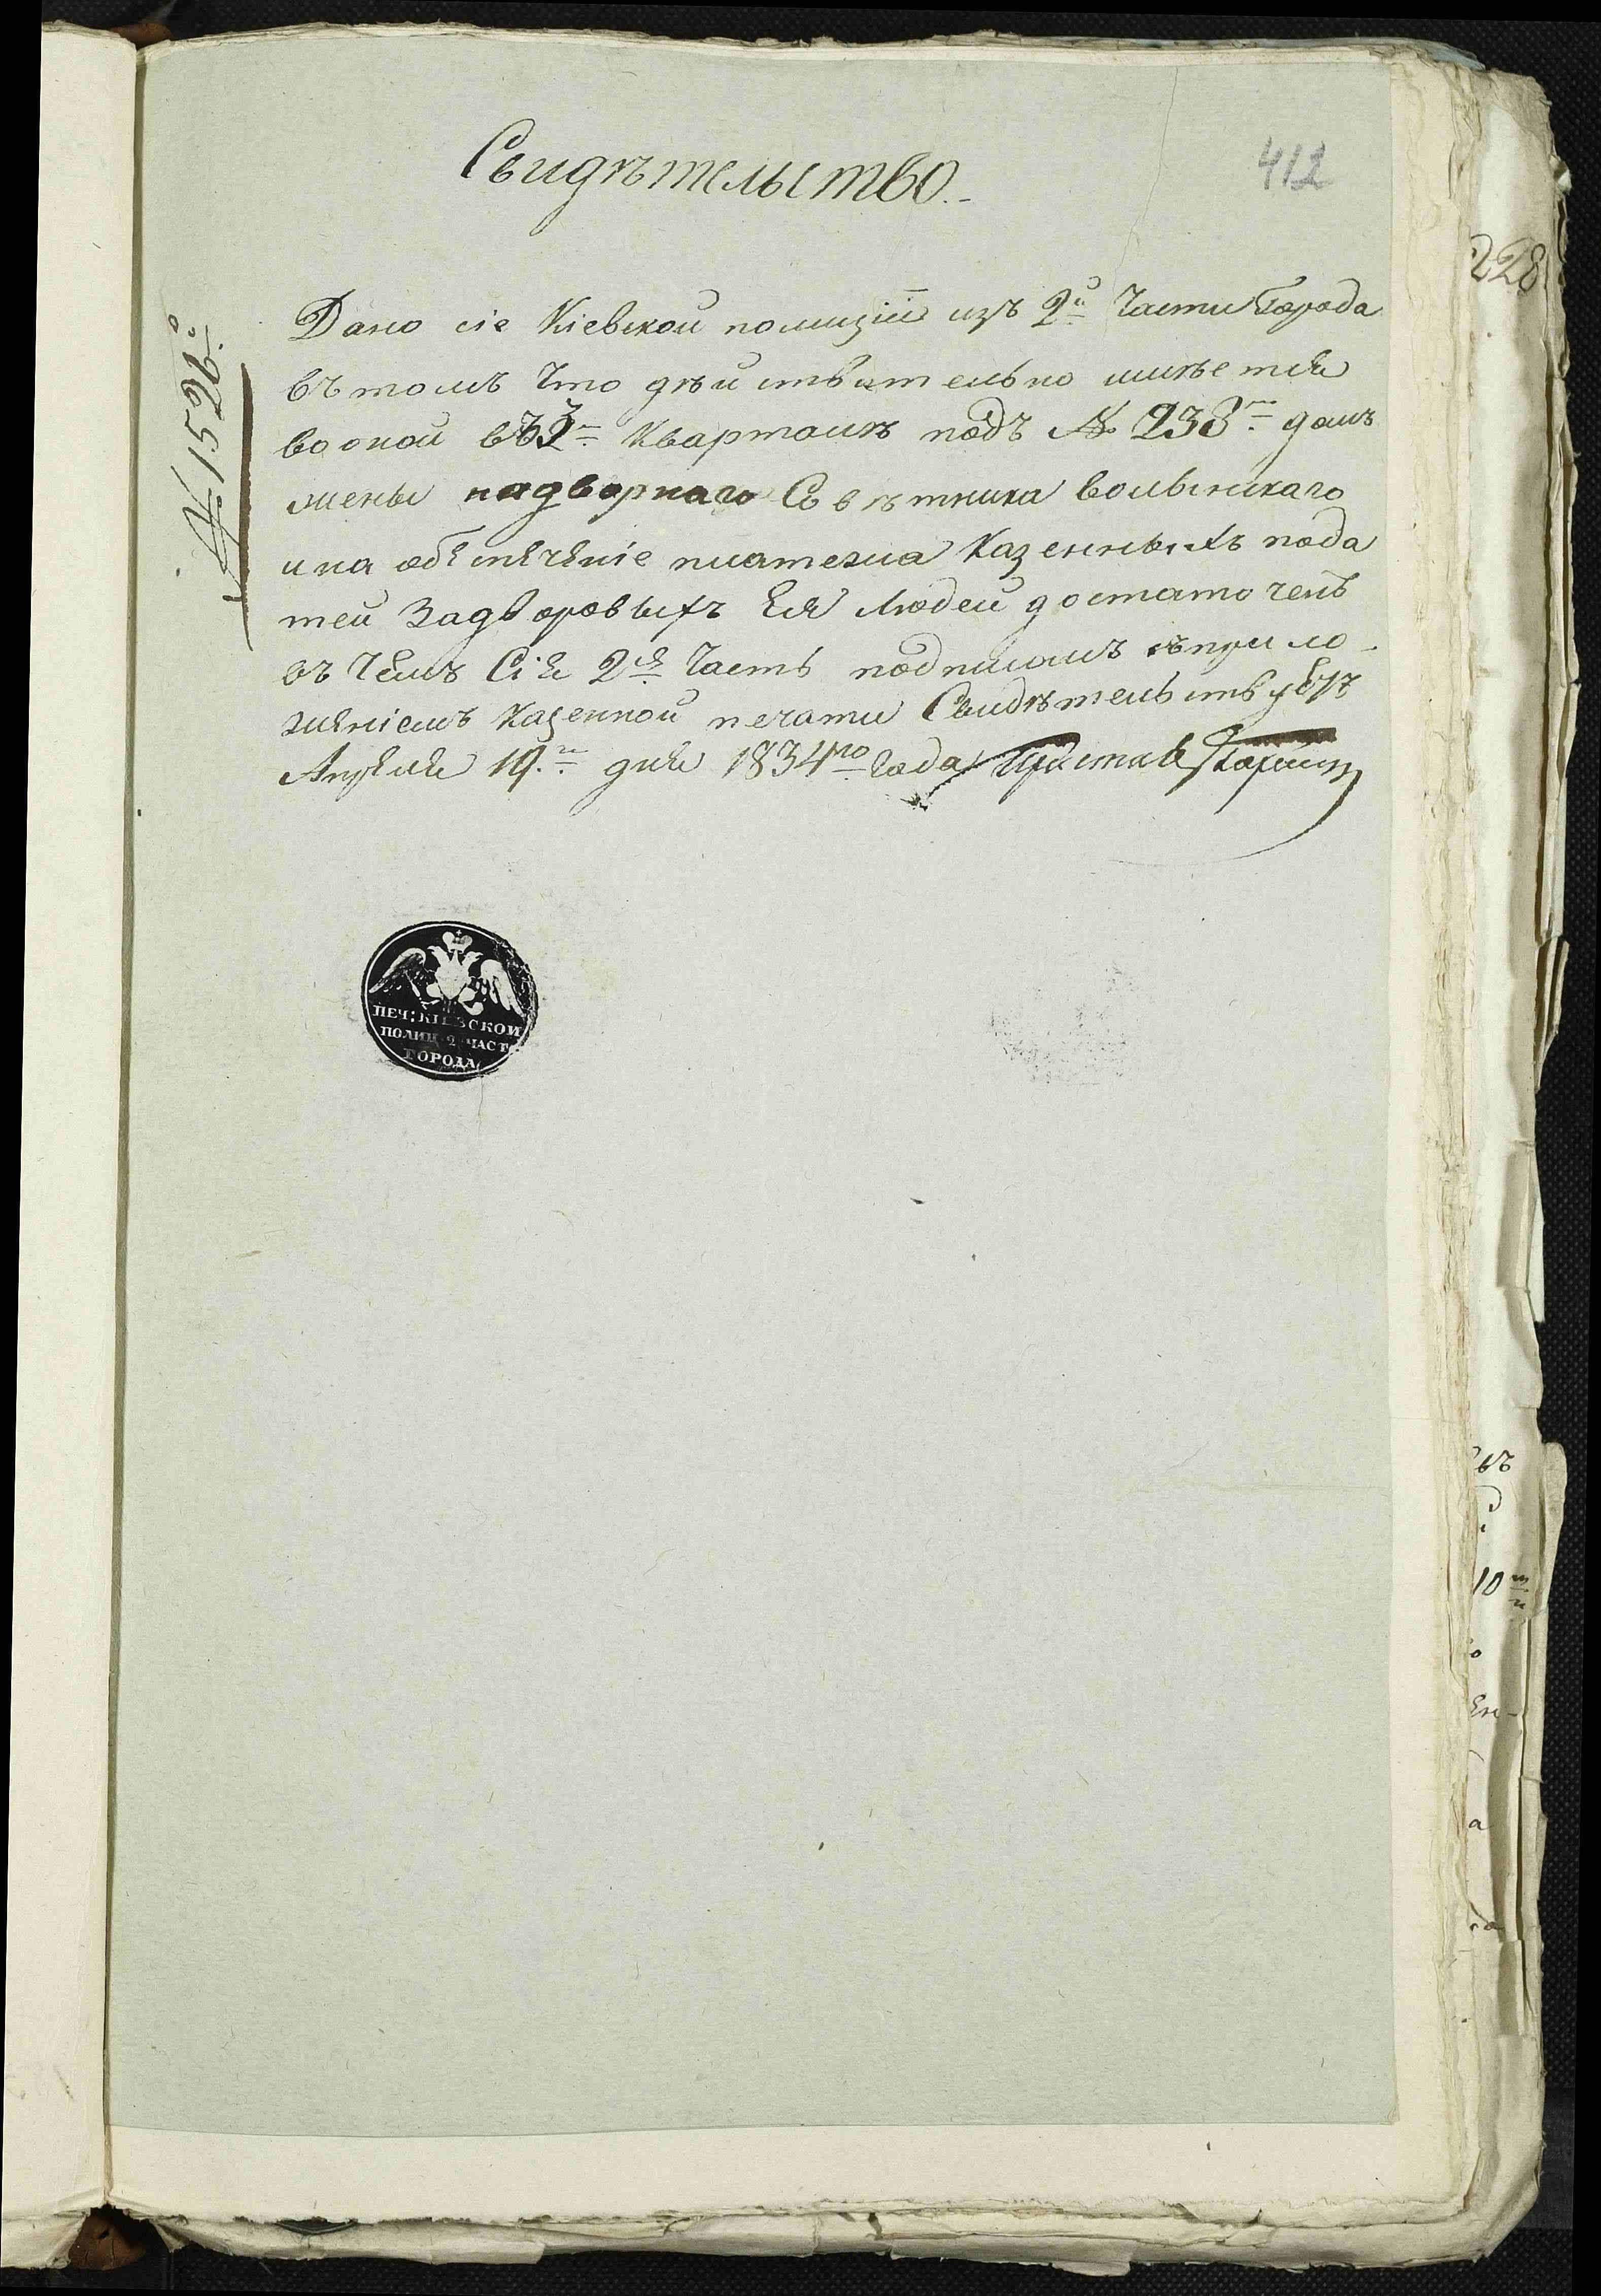 Свидѣтельство.
412
№ 1526й
Дано сіе Кіевской полиціи изъ 2й Части Города
въ томъ Что дѣйствительно имѣется
во оной въ 3м Кварталѣ подъ № 238м домъ
жены надворнаго Совѣтника волынскаго
и на обеспеченіе платежа Казенныхъ пода
тей За дворовыхъ Ея Людей достаточенъ
въ Чемъ Сія 2я Часть подписомъ съ прило-
женіемъ казенной печати Свидѣтельствуетъ
Апреля 19го дня 1834го года Приставъ
ПЕЧ: КІЕВСКОЙ
ПОЛИЦ 2 ЧАСТ
ГОРОДА
228